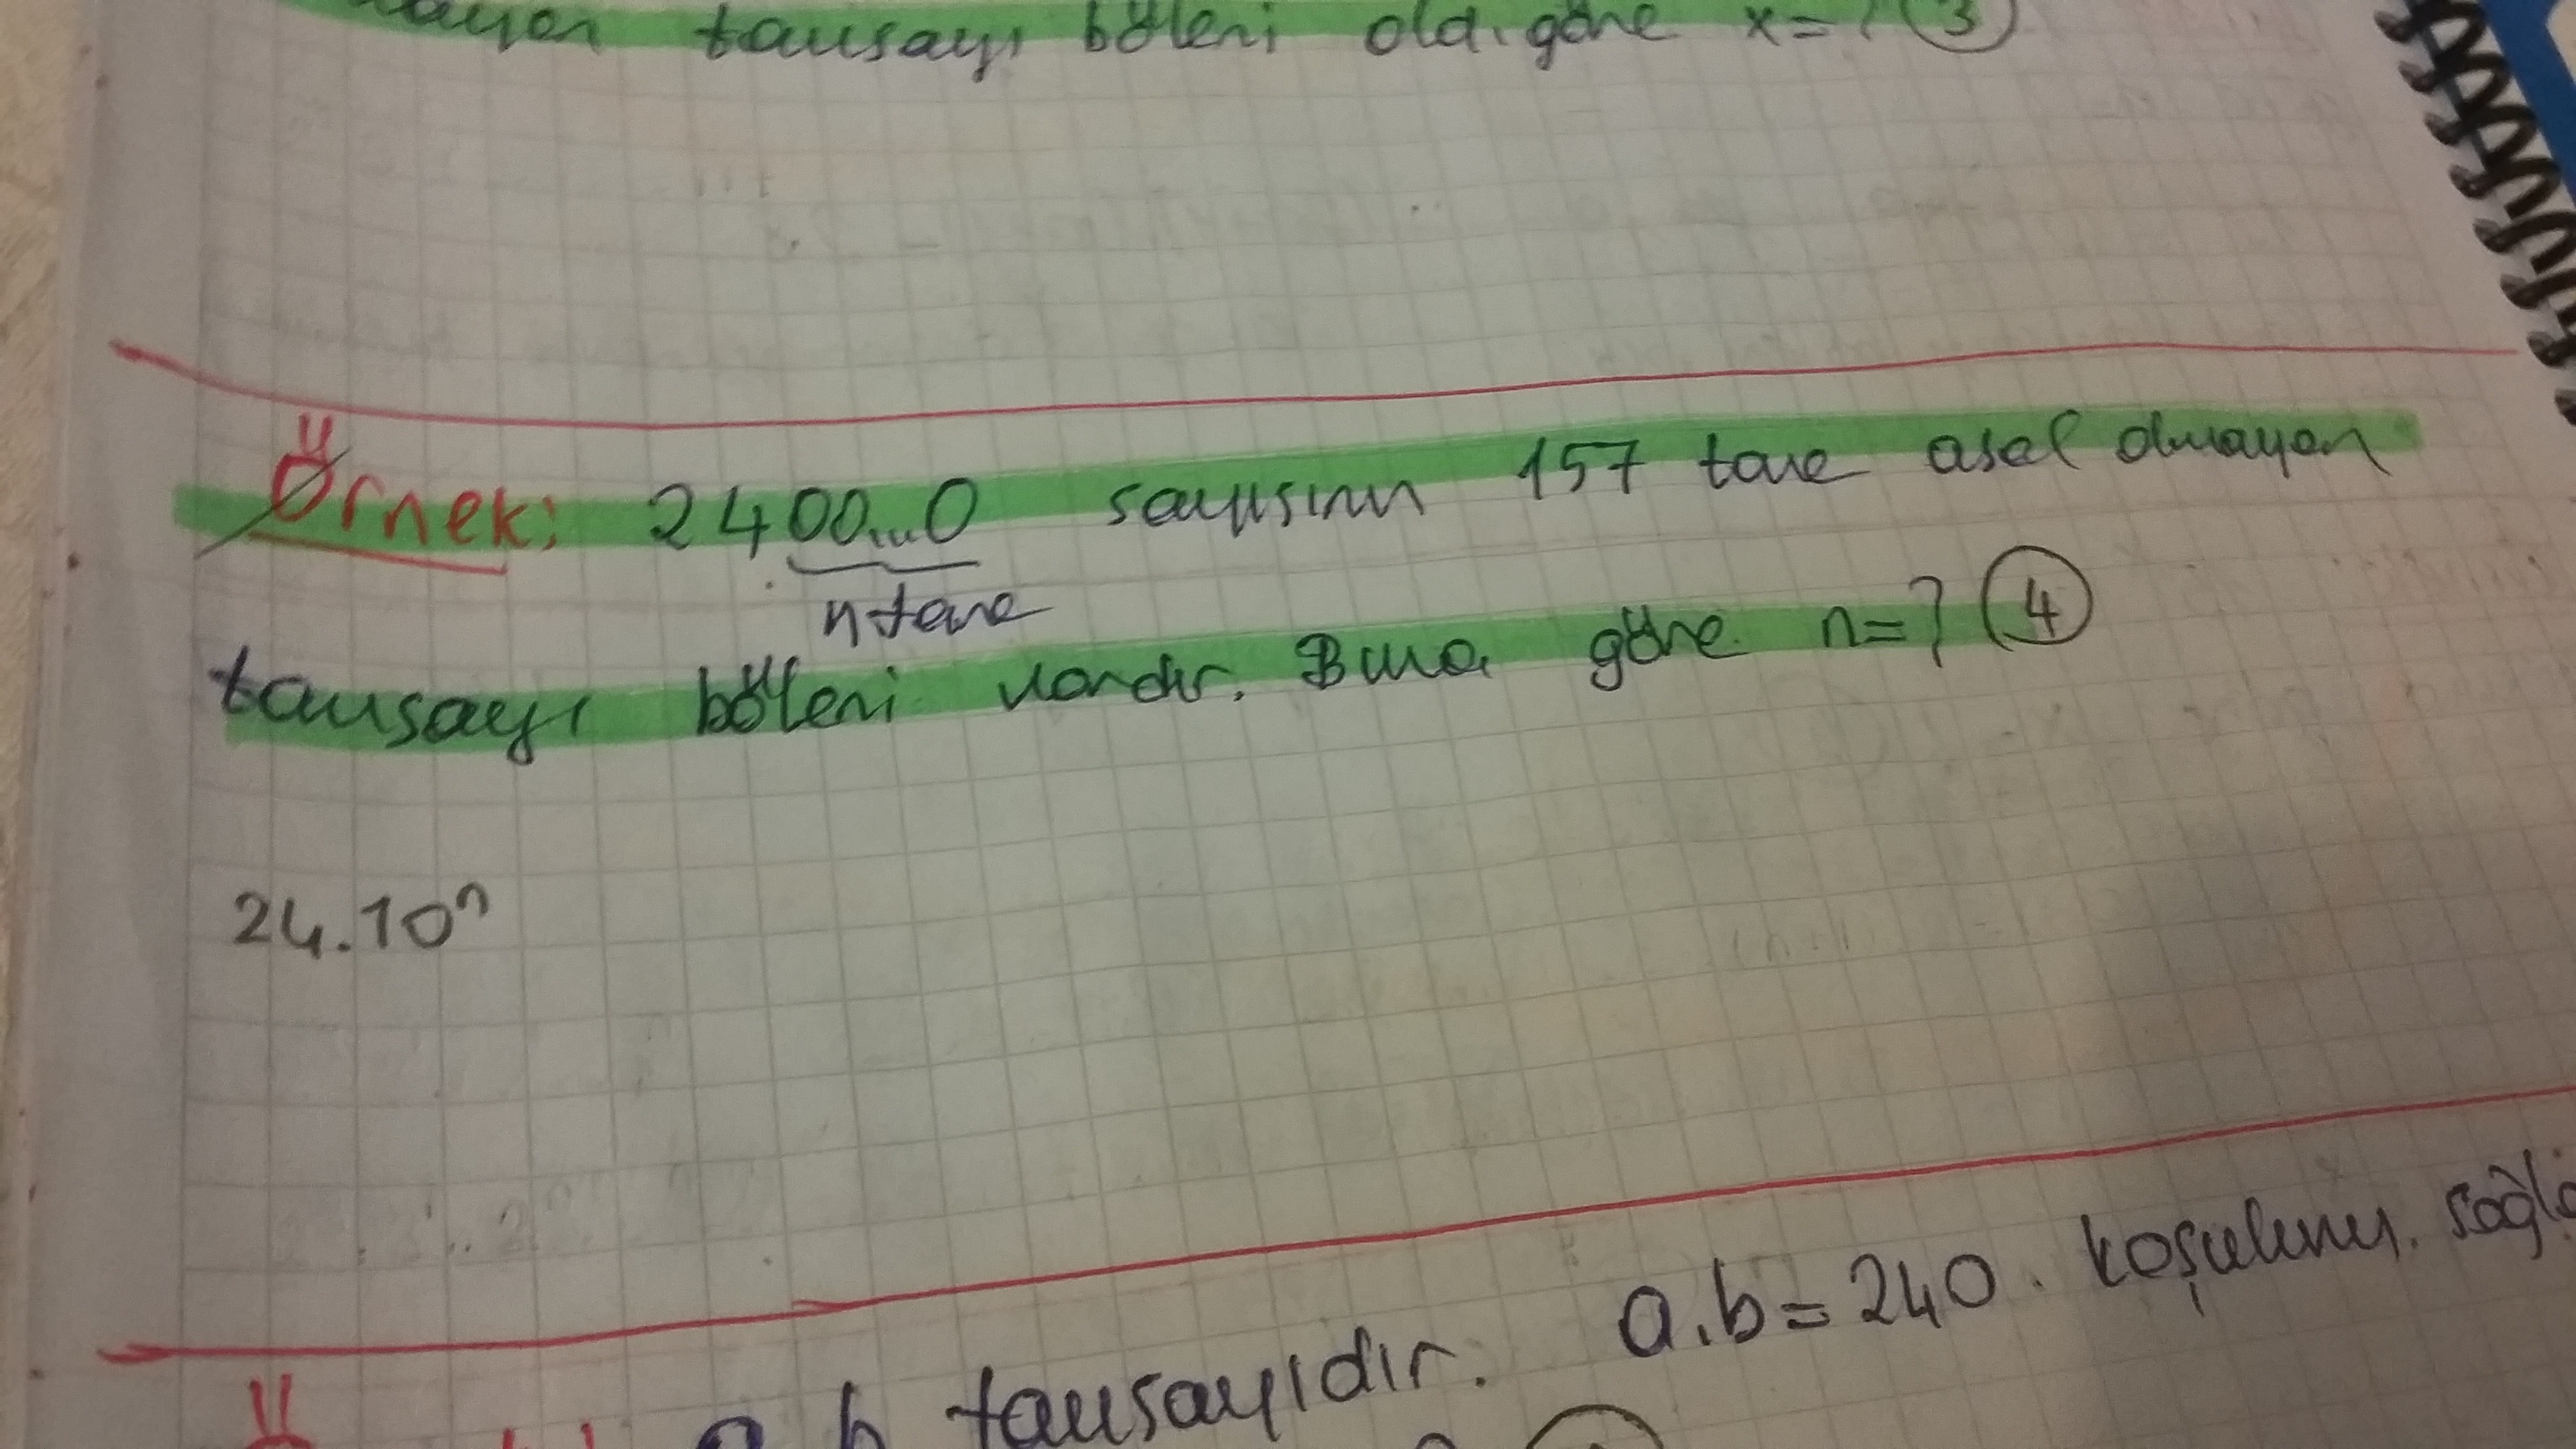 tamsayı böleni old. göre x=? 3
Örnek: 2400...0 sayısının 157 tane asal olmayan
n tane
tamsayı böleni vardır. Buna göre n=? 4
24.10ⁿ
a.b=240. koşulunu
a b tamsayıdır.